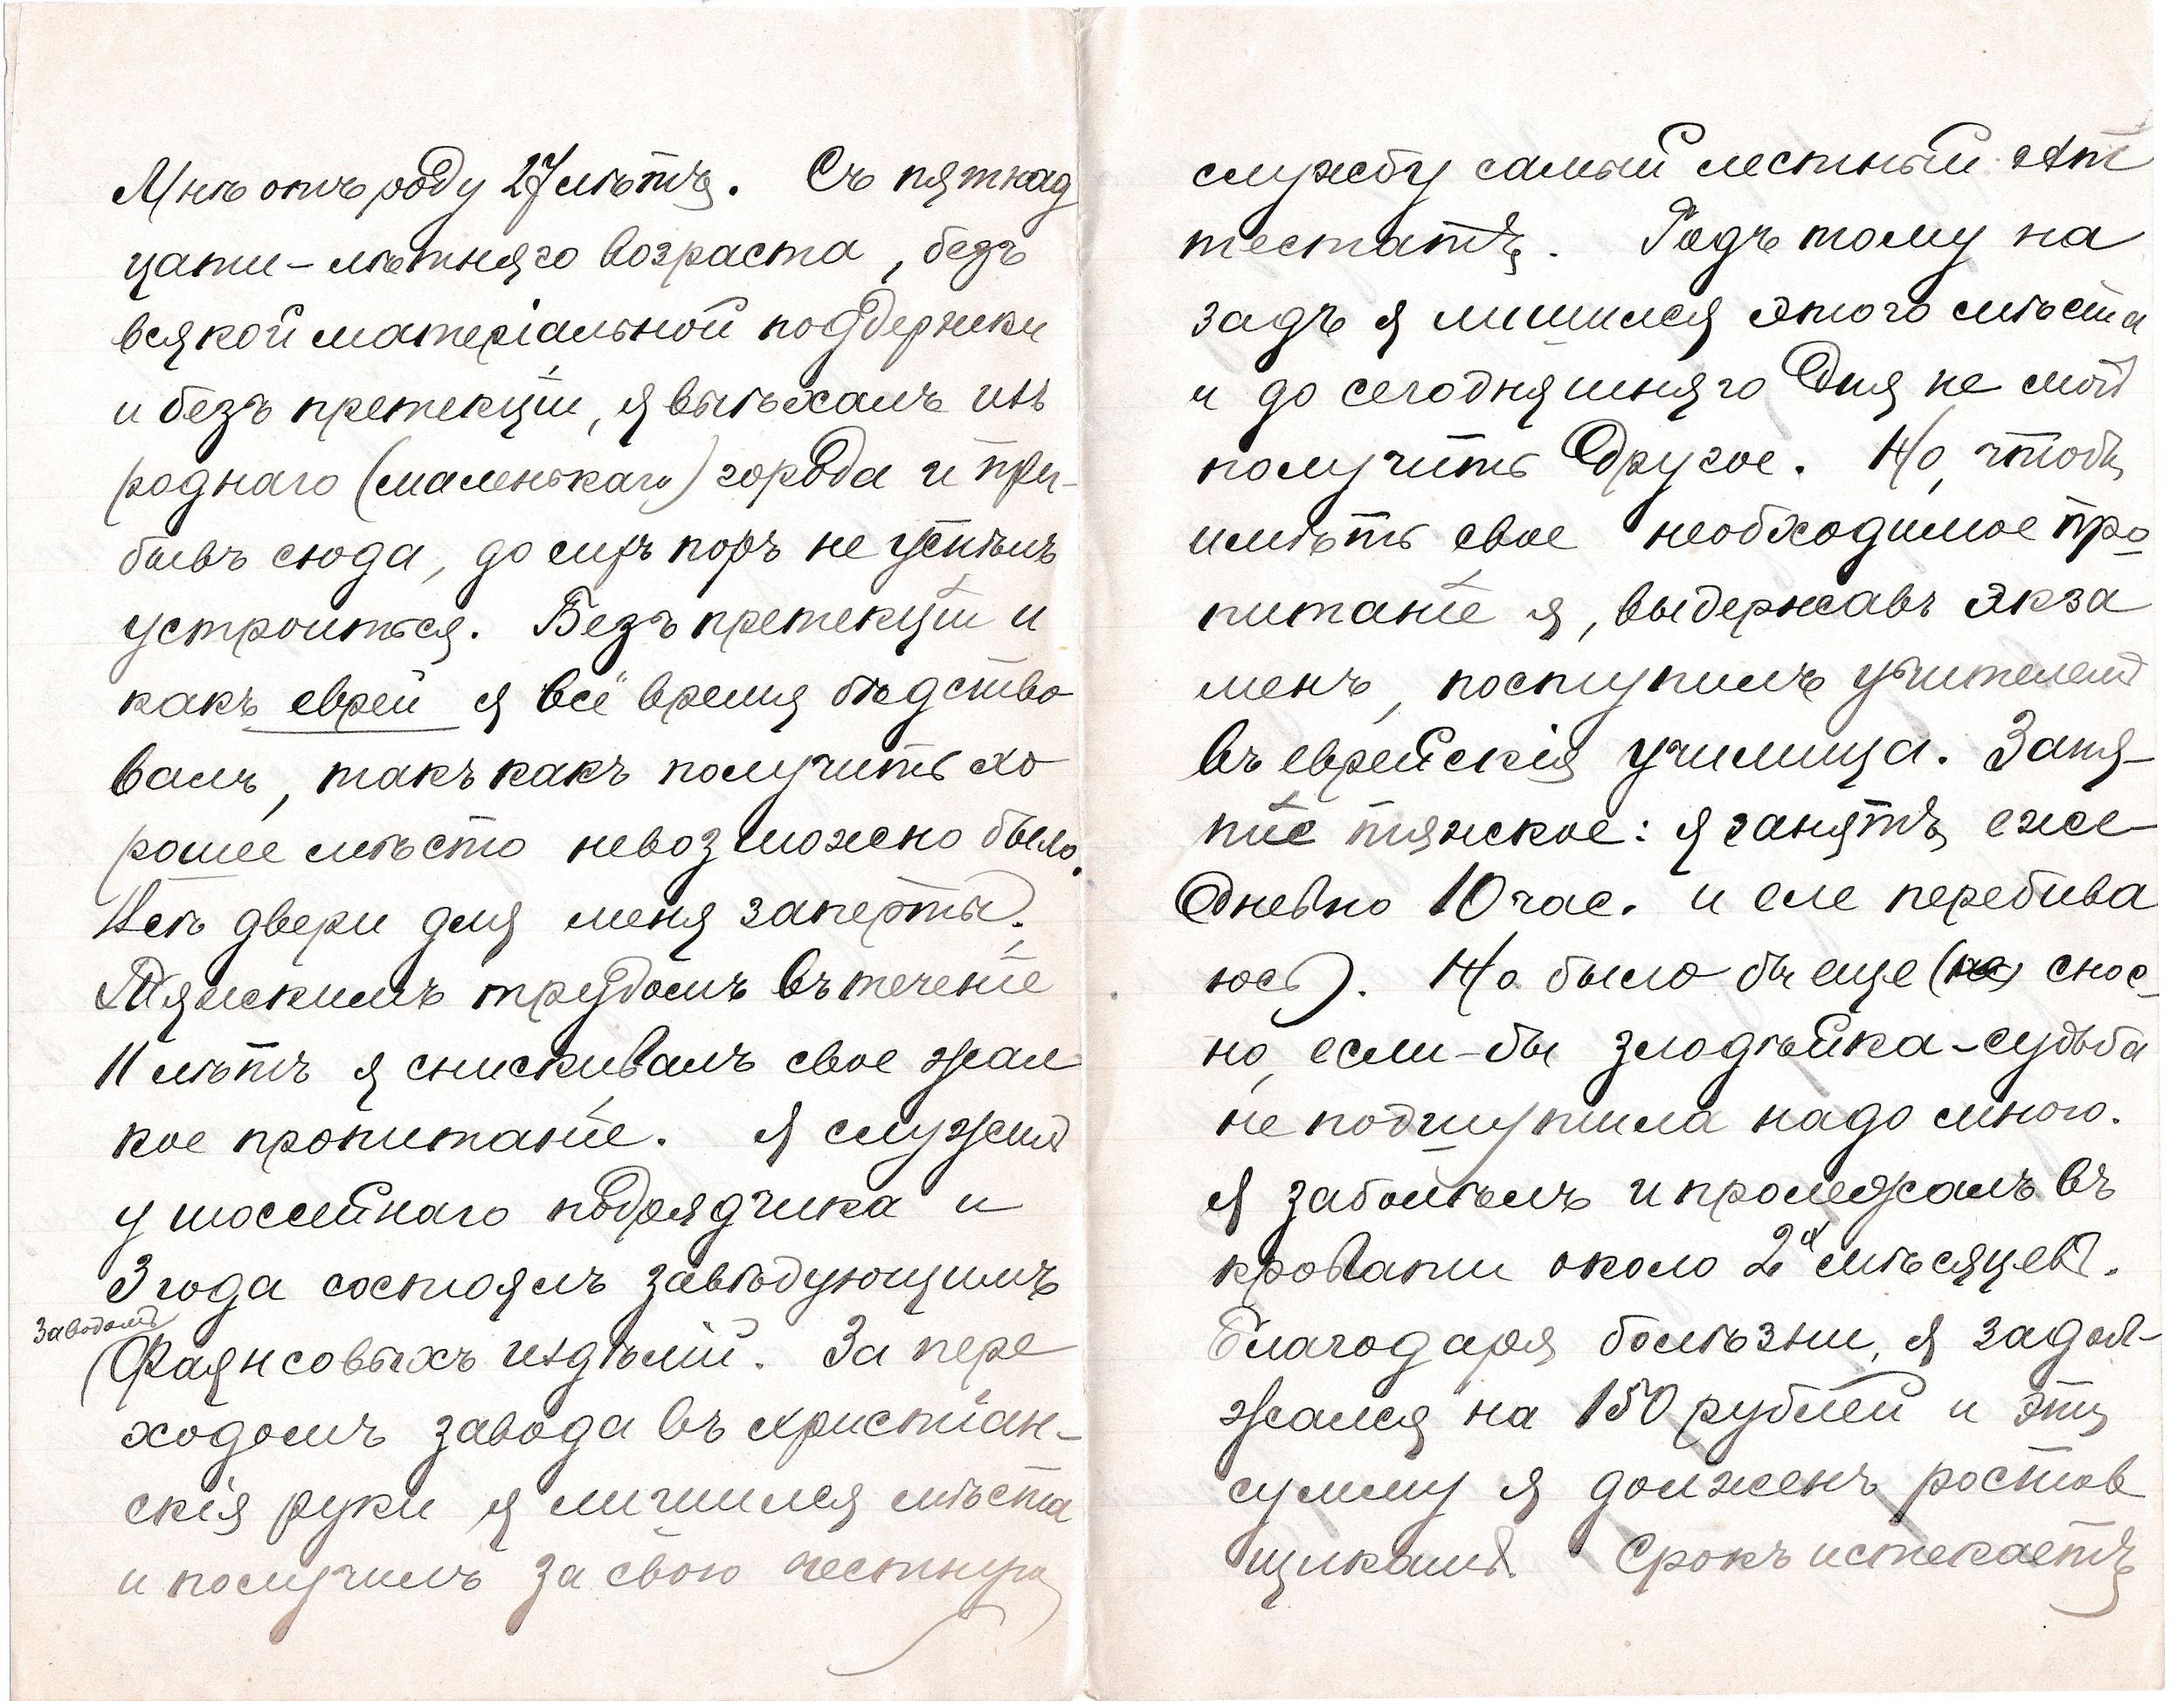 Мнѣ отъ роду 27 лѣтъ. Съ пятнад
цати-лѣтняго возраста, безъ
всякой матеріальной поддержки
и безъ претекціи, я выѣхалъ изъ
роднаго (маленькаго) города и при-
бывъ сюда, до сихъ поръ не успѣлъ
устроиться. Безъ претекціи и
какъ еврей я всё время бѣдство
валъ, такъ какъ получить хо
рошее мѣсто невозможно было.
Всѣ двери для меня заперты.
Тяжскимъ трудомъ въ теченіе
11 лѣтъ я снискивалъ свое жал
кое пропитаніе. Я служилъ
у шоссейнаго подрядчика и
3 года состоялъ завѣдующимъ
заводомъ
(Фаянсовыхъ издѣлій. За пере
ходомъ завода въ христіан-
скія руки я лишился мѣста
и получилъ за свою честную
службу самый лестный ат
тестатъ. Годъ тому на
задъ я лишился этого мѣста
и до сегодняшняго дня не могъ
получить другое. Но, чтобъ
имѣть свое необходимое про
питаніе я, выдержавъ экза
менъ, поступилъ учителемъ
въ еврейскія училища. Заня-
тіе тяжское: я занятъ еже-
дневно 10 час. и еле перебива
юсь). Но было бы еще (не) снос-
но, если-бы злодѣйка-судьба
не подшутила надо мною.
Я заболѣлъ и пролежалъ въ
кровати около 2х мѣсяцевъ.
Благодаря болѣзни, я задол-
жался на 150 рублей и эту
сумму я долженъ ростов
щикамъ. Срокъ истекаетъ